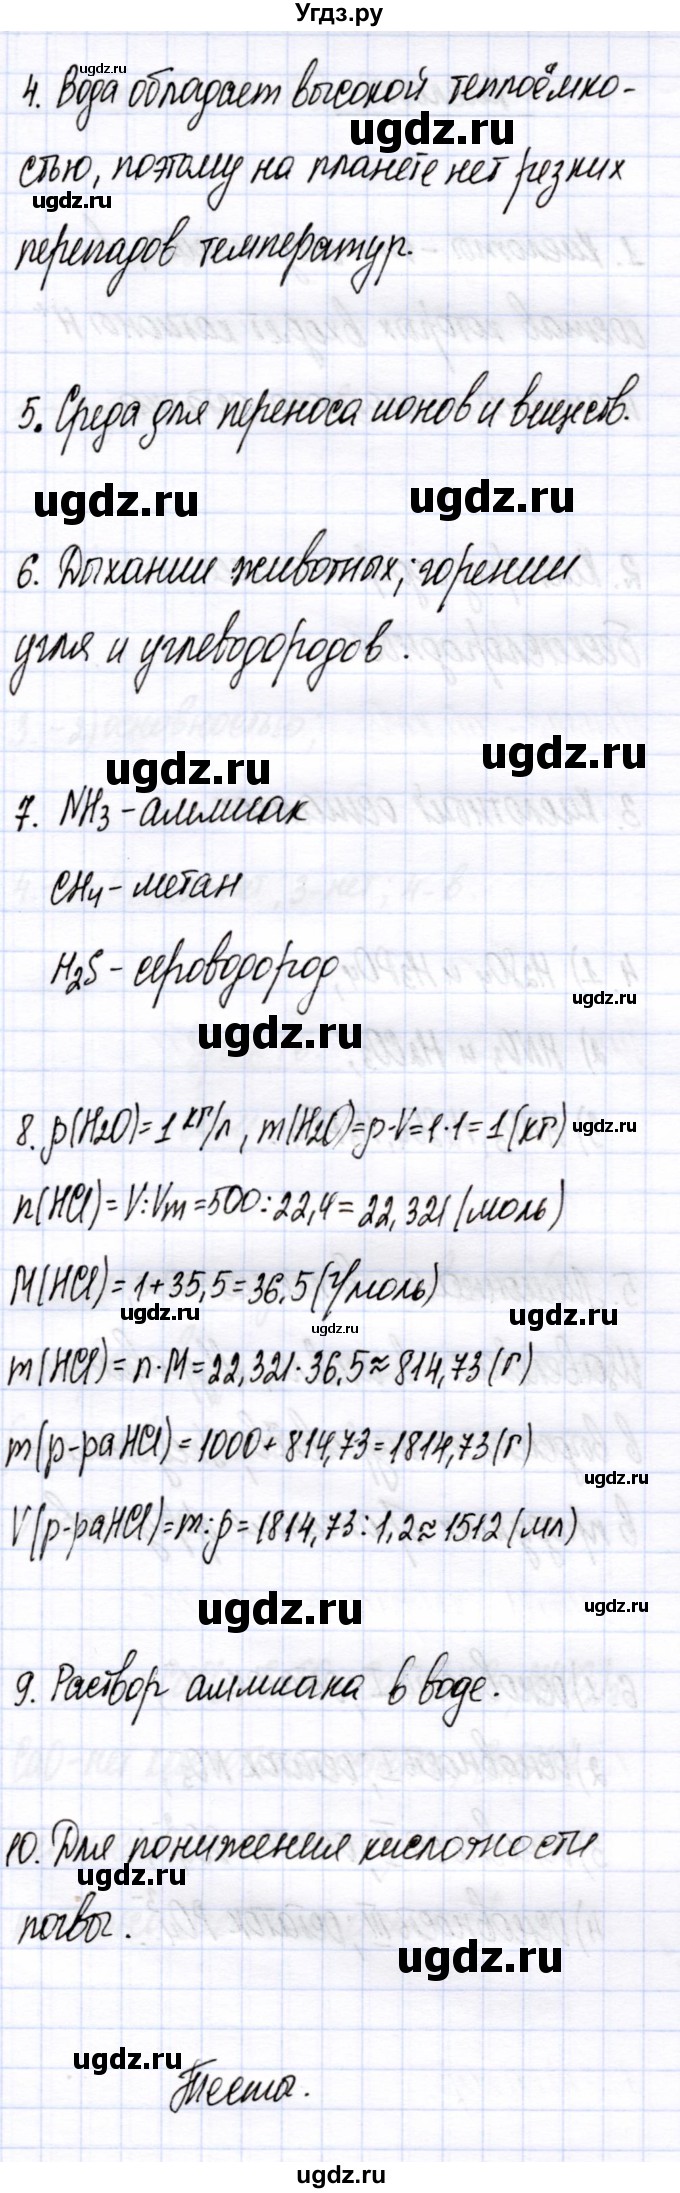 Угдз.ру
ugdz.ru
4. Вода обладает высокой теплоёмко-
ugdz.ru
стью, поэтому на планете нет резких
ugdz.ru
перепадов температур.
5. Среда для переноса ионов и веществ.
ugdz.ru ugdz.ru
6. Дыхании животных; горении
угля и углеводородов.
ugdz.ru ugdz.ru
7. NH3 - аммиак
CH4 - метан
H2S - сероводород
ugdz.ru
ugdz.ru
8. ρ(H2O) = 1 кг/л, m(H2O) = ρ·V = 1·1 = 1 (кг)
ugdz.ru
n(HCl) = V : Vm = 500 : 22,4 = 22,321 (моль)
M(HCl) = 1 + 35,5 = 36,5 (г/моль)
ugdz.ru ugdz.ru ugdz.ru
m(HCl) = n·M = 22,321·36,5 ≈ 814,73 (г)
m(р-ра HCl) = 1000 + 814,73 = 1814,73 (г)
ugdz.ru
V(р-ра HCl) = m : ρ = 1814,73 : 1,2 ≈ 1512 (мл)
ugdz.ru ugdz.ru
9. Раствор аммиака в воде.
10. Для понижения кислотности
ugdz.ru
почвы.
ugdz.ru
ugdz.ru
Тесты.
ugdz.ru